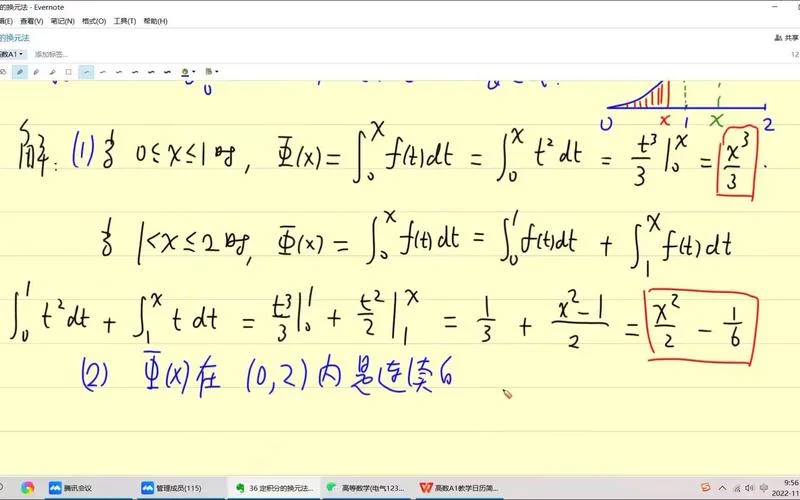 的换元法 - Evernote
辑(E) 查看(V) 笔记(N) 格式(O) 工具(T) 帮助(H)
的换元法
共享
高数A1 添加标签...
0 x 1 x 2
解: (1) 当 0≤x≤1时, Φ(x) = ∫₀ˣ f(t)dt = ∫₀ˣ t² dt = t³/3 |₀ˣ = x³/3 .
当 1<x≤2时, Φ(x) = ∫₀ˣ f(t)dt = ∫₀¹ f(t)dt + ∫₁ˣ f(t)dt
∫₀¹ t² dt + ∫₁ˣ t dt = t³/3 |₀¹ + t²/2 |₁ˣ = 1/3 + (x²-1)/2 = x²/2 - 1/6
(2) Φ(x) 在 (0,2) 内是连续的
腾讯会议 管理成员(115) 36 定积分的换元法... 高等数学(电气123... 高数A1教学日历简... 中 9:56
2022-11